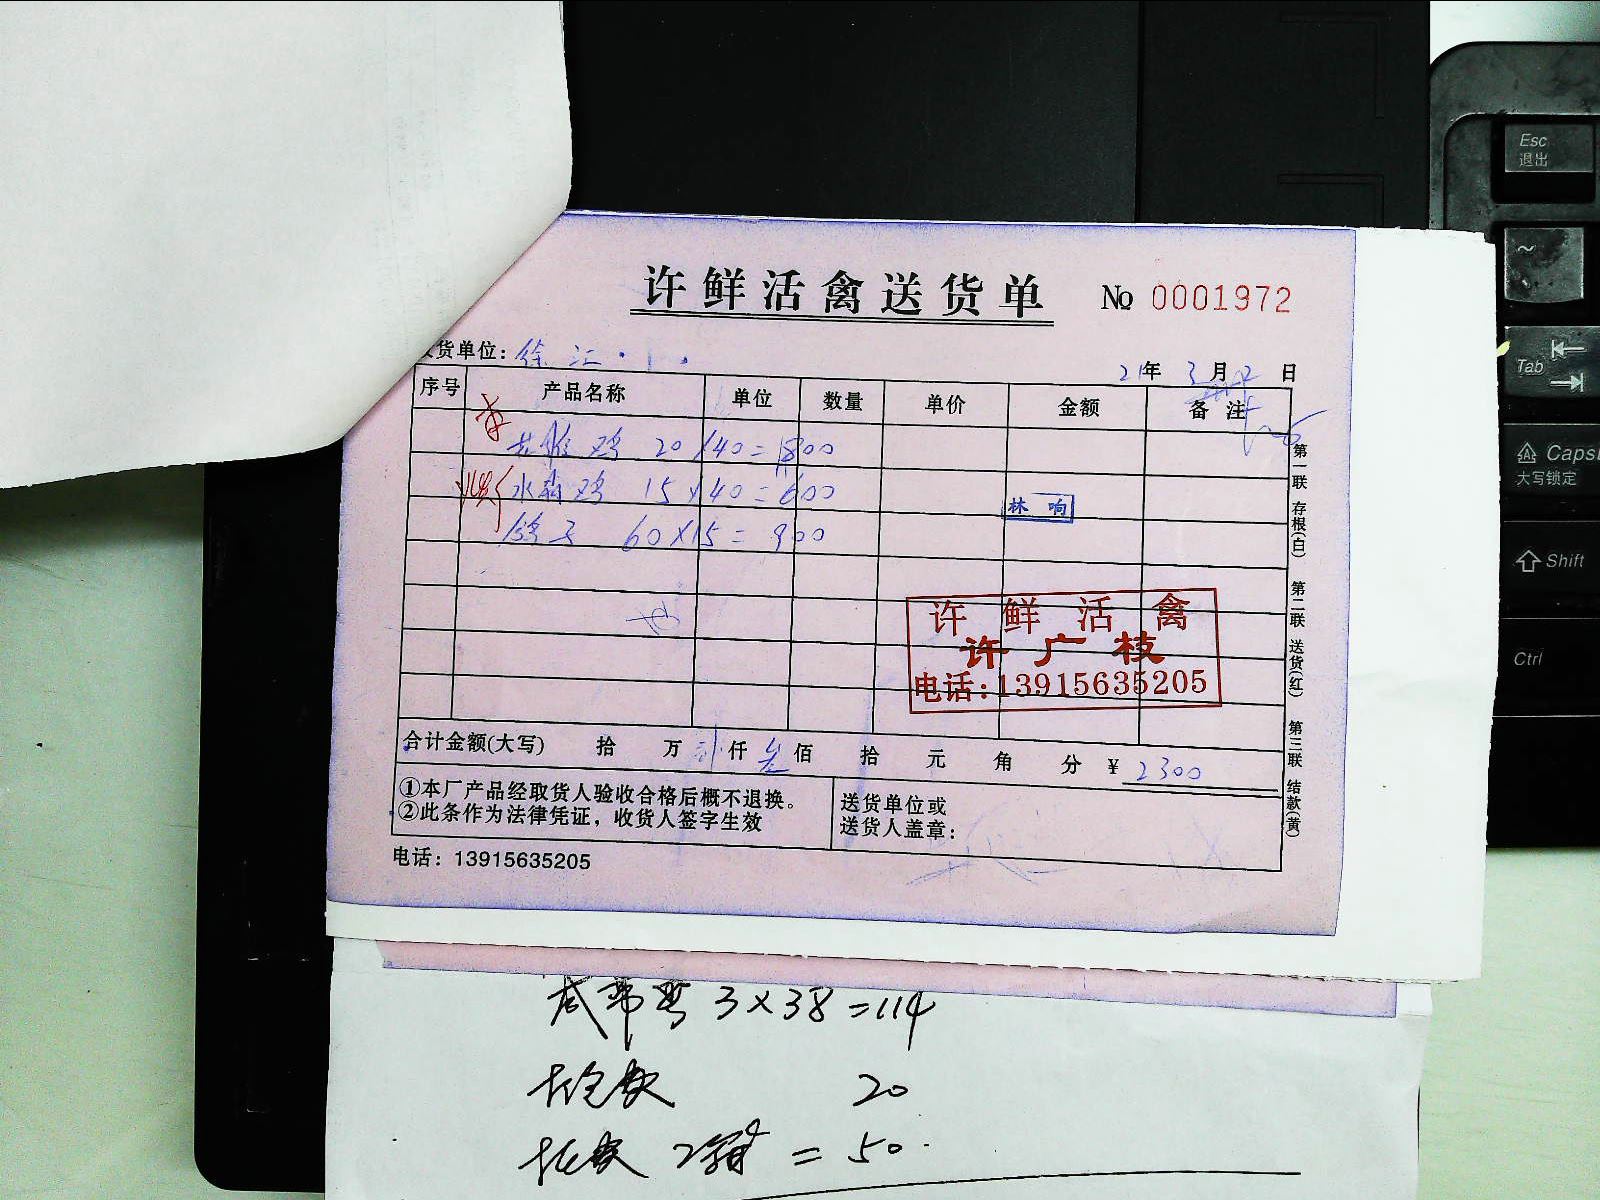 许鲜活禽送货单 No 0001972
货单位：徐汇
21年 3月2日
序号 产品名称 单位 数量 单价 金额 备注
鸡 20×40=800
水 鸡 15×40=600
鸽子 60×15=900
林响
许鲜活禽
许广枝
电话：13915635205
合计金额(大写) 拾 万 仟 叁 佰 拾 元 角 分 ¥ 2300
①本厂产品经取货人验收合格后概不退换。
②此条作为法律凭证，收货人签字生效
送货单位或
送货人盖章：
电话：13915635205
第一联 存根(白) 第二联 送货(红) 第三联 结款(黄)
3×38=114
20
2箱 = 50
Esc
退出
~
Tab
Caps
大写锁定
Shift
Ctrl